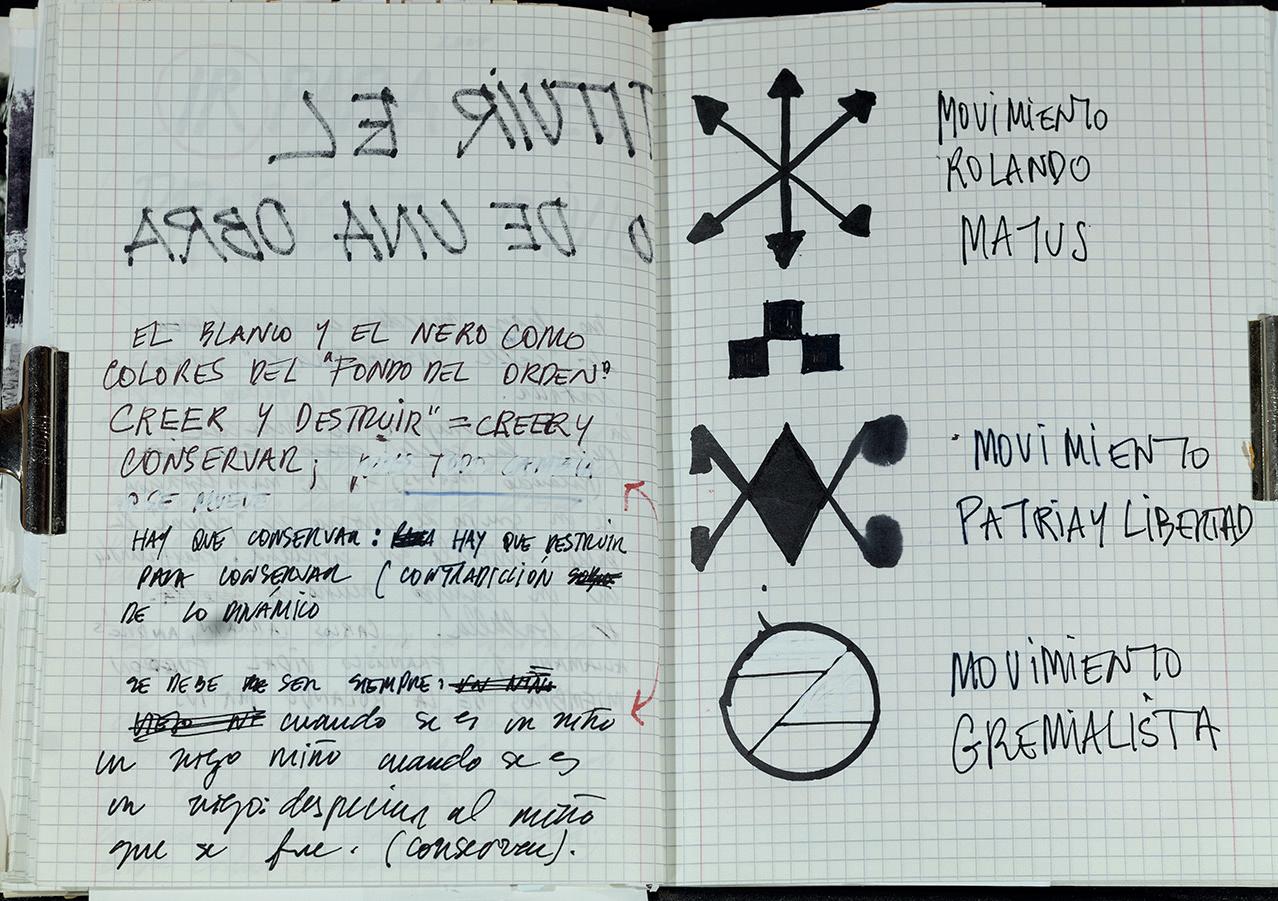 EL BLANCO Y EL NERO COMO
COLORES DEL "FONDO DEL ORDEN"
CREER Y DESTRUIR" = CREER Y
CONSERVAR;
HAY QUE CONSERVAR: HAY QUE DESTRUIR
PARA CONSERVAR (CONTRADICCIÓN
DE LO DINÁMICO
SE DEBE SER SIEMPRE:
cuando se es un niño
un viejo niño cuando se es
un viejo: despreciar al niño
que se fue. (conservar).
MOVIMIENTO
ROLANDO
MATUS
MOVIMIENTO
PATRIA Y LIBERTAD
MOVIMIENTO
GREMIALISTA